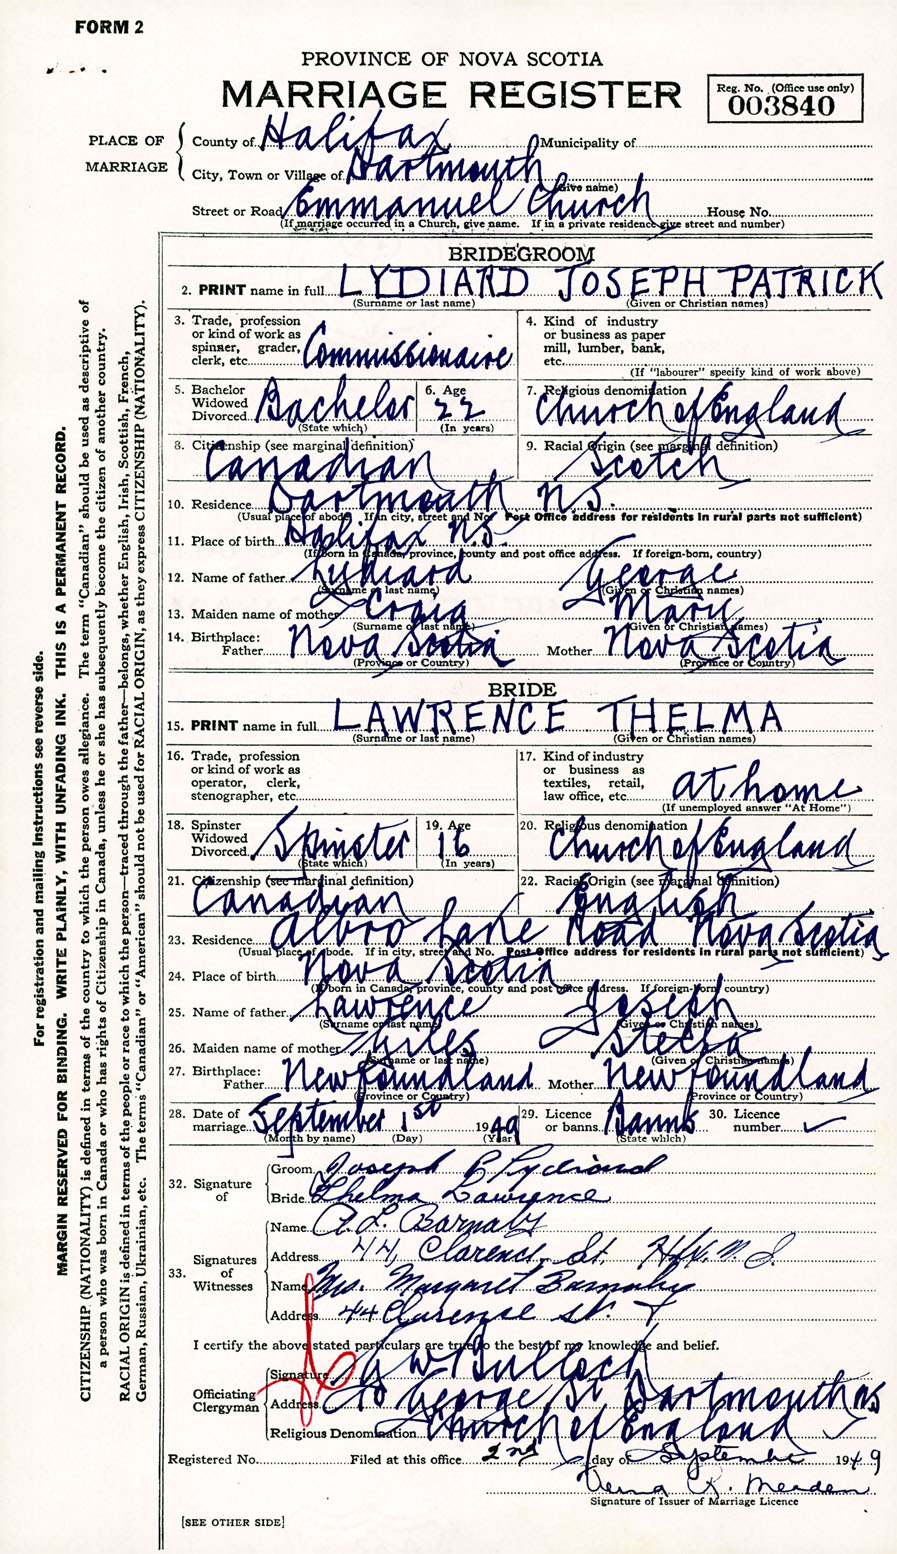 FORM 2
PROVINCE OF NOVA SCOTIA
MARRIAGE REGISTER
Reg. No. (Office use only)
003840
PLACE OF MARRIAGE
County of Halifax Municipality of
City, Town or Village of Dartmouth
(Give name)
Street or Road Emmanuel Church House No.
(If marriage occurred in a Church, give name. If in a private residence give street and number)
BRIDEGROOM
2. PRINT name in full LYDIARD JOSEPH PATRICK
(Surname or last name) (Given or Christian names)
3. Trade, profession or kind of work as spinner, grader, clerk, etc. Commissionaire
4. Kind of industry or business as paper mill, lumber, bank, etc.
(If "labourer" specify kind of work above)
5. Bachelor Widowed Divorced Bachelor
(State which)
6. Age 22
(In years)
7. Religious denomination
Church of England
8. Citizenship (see marginal definition)
Canadian
9. Racial Origin (see marginal definition)
Scotch
10. Residence Dartmouth N.S.
(Usual place of abode. If in city, street and No. Post Office address for residents in rural parts not sufficient)
11. Place of birth Halifax N.S.
(If born in Canada, province, county and post office address. If foreign-born, country)
12. Name of father Lydiard George
(Surname or last name) (Given or Christian names)
13. Maiden name of mother Craig Mary
(Surname or last name) (Given or Christian names)
14. Birthplace: Father Nova Scotia Mother Nova Scotia
(Province or Country) (Province or Country)
BRIDE
15. PRINT name in full LAWRENCE THELMA
(Surname or last name) (Given or Christian names)
16. Trade, profession or kind of work as operator, clerk, stenographer, etc.
17. Kind of industry or business as textiles, retail, law office, etc. at home
(If unemployed answer "At Home")
18. Spinster Widowed Divorced Spinster
(State which)
19. Age 16
(In years)
20. Religious denomination
Church of England
21. Citizenship (see marginal definition)
Canadian
22. Racial Origin (see marginal definition)
English
23. Residence Albro Lane Road Nova Scotia
(Usual place of abode. If in city, street and No. Post Office address for residents in rural parts not sufficient)
24. Place of birth Nova Scotia
(If born in Canada, province, county and post office address. If foreign-born, country)
25. Name of father Lawrence Joseph
(Surname or last name) (Given or Christian names)
26. Maiden name of mother Stella
(Surname or last name) (Given or Christian names)
27. Birthplace: Father Newfoundland Mother Newfoundland
(Province or Country) (Province or Country)
28. Date of marriage September 1st 1949
(Month by name) (Day) (Year)
29. Licence or banns Banns
(State which)
30. Licence number ✓
32. Signature of
Groom Joseph P Lydiard
Bride Thelma Lawrence
33. Signatures of Witnesses
Name A. L. Barnaby
Address 44, Clarence St. Hfx. N. S.
Name Mrs. Margaret Barnaby
Address 44 Clarence St.
I certify the above stated particulars are true to the best of my knowledge and belief.
Officiating Clergyman
Signature G W Bulloch
Address George St Dartmouth NS
Religious Denomination Church of England
Registered No. Filed at this office 2nd day of September 1949
Verna R. Meaden
Signature of Issuer of Marriage Licence
[SEE OTHER SIDE]
For registration and mailing instructions see reverse side.
MARGIN RESERVED FOR BINDING. WRITE PLAINLY, WITH UNFADING INK. THIS IS A PERMANENT RECORD.
CITIZENSHIP (NATIONALITY) is defined in terms of the country to which the person owes allegiance. The term "Canadian" should be used as descriptive of
a person who was born in Canada or who has rights of Citizenship in Canada, unless he or she has subsequently become the citizen of another country.
RACIAL ORIGIN is defined in terms of the people or race to which the person—traced through the father—belongs, whether English, Irish, Scottish, French,
German, Russian, Ukrainian, etc. The terms "Canadian" or "American" should not be used for RACIAL ORIGIN, as they express CITIZENSHIP (NATIONALITY).